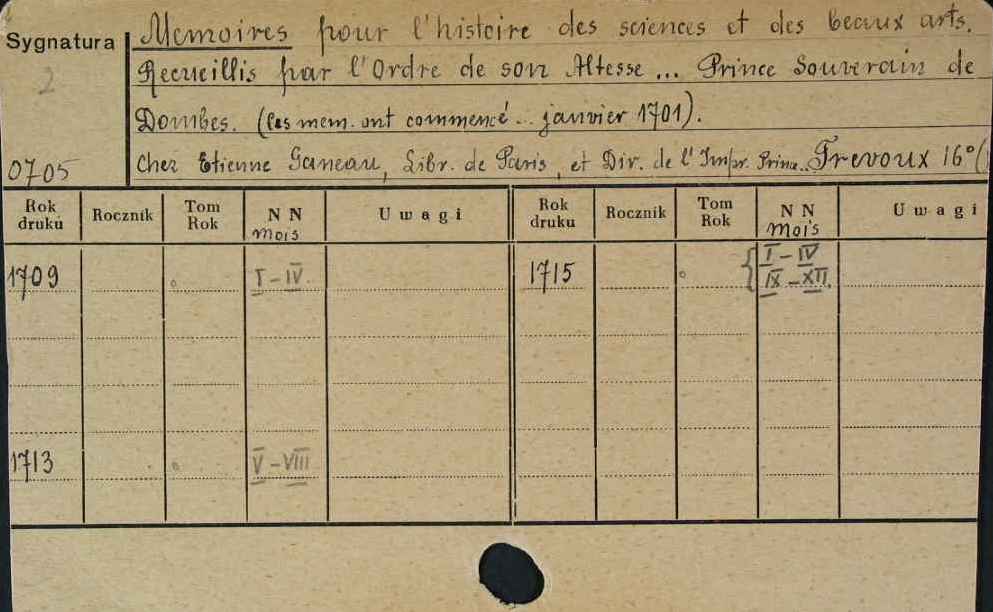 Sygnatura
2
0705
Memoires pour l'histoire des sciences et des beaux arts.
Recueillis par l'Ordre de son Altesse ... Prince Souverain de
Dombes. (les mem. ont commencé .. janvier 1701).
Chez Etienne Ganeau, Libr. de Paris, et Dir. de l'Impr. Prince.. Trevoux 16° (
Rok druku Rocznik Tom Rok NN mois Uwagi Rok druku Rocznik Tom Rok NN mois Uwagi
1709 I - IV. 1715 { I - IV
IX - XII.
1713 V - VIII